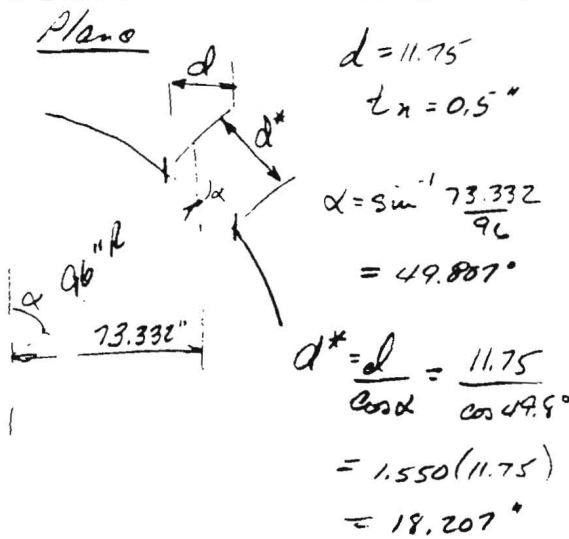 Plano
d
d*
α
α
96"R
73.332"
d = 11.75
tn = 0.5"
α = sin⁻¹ 73.332
96
= 49.807°
d* = d = 11.75
cos α cos 49.8°
= 1.550(11.75)
= 18.207"